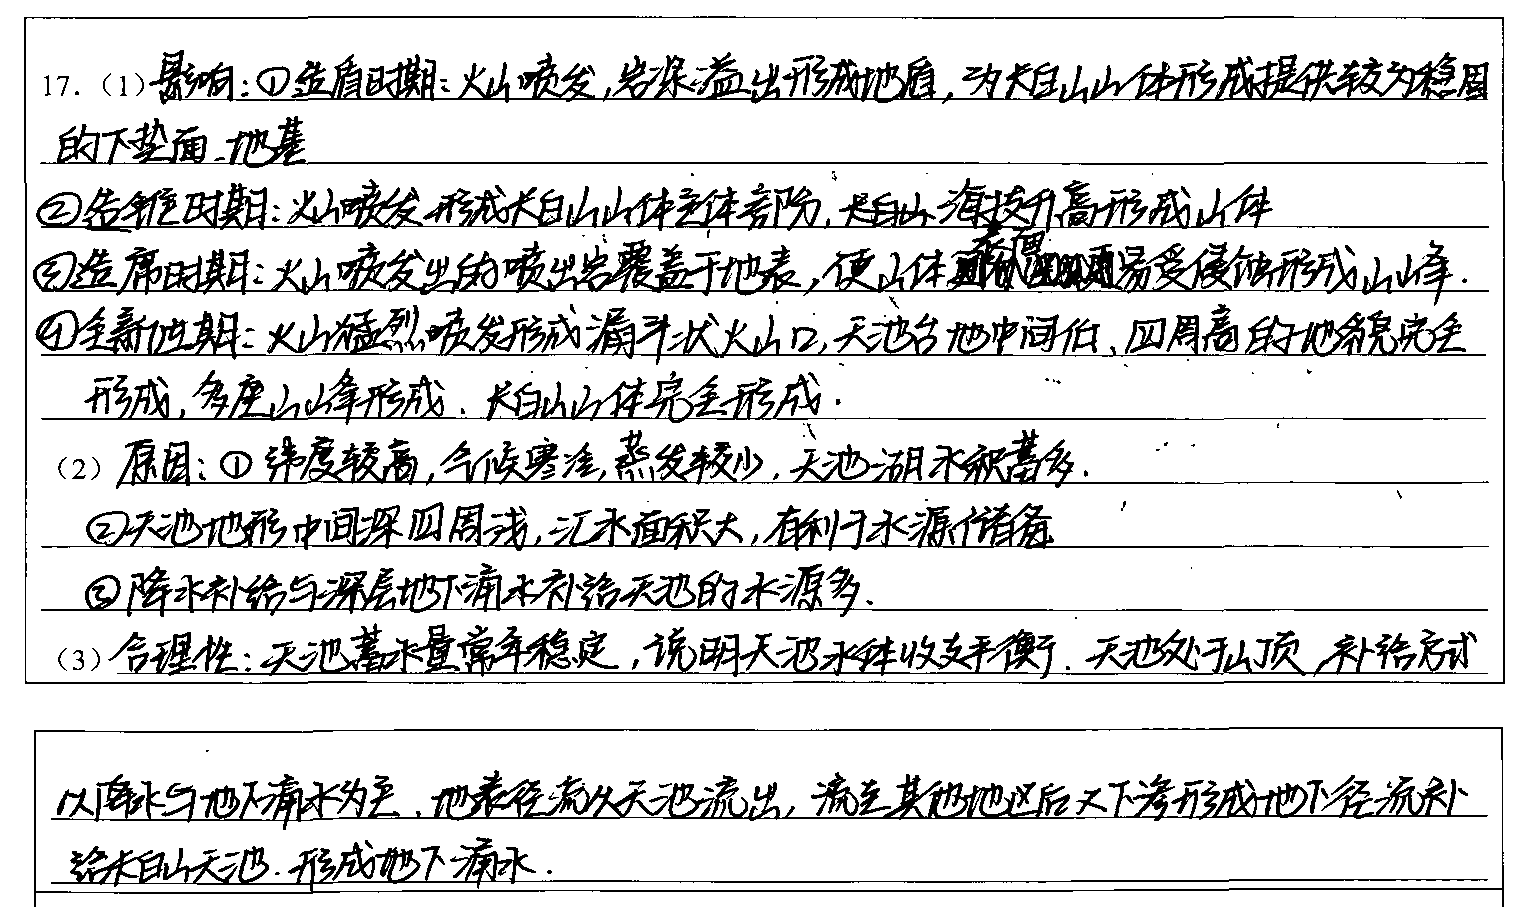 17.（1）影响：①造盾时期：火山喷发，岩浆溢出形成地盾，为长白山山体形成提供较为稳固
的下垫面、地基
②造锥时期：火山喷发形成长白山山体主体部份，长白山海拔升高形成山体
③造席时期：火山喷发出的喷出岩覆盖于地表，使山体易受侵蚀形成山峰.
④全新世期：火山猛烈喷发形成漏斗状火山口，天池台地中间低、四周高的地貌完全
形成，多座山峰形成、长白山山体完全形成.
（2）原因：①纬度较高，气候寒冷，蒸发较少，天池湖水积蓄多.
②天池地形中间深四周浅，汇水面积大，有利于水源储备
③降水补给与深层地下涌水补给天池的水源多.
（3）合理性：天池蓄水量常年稳定，说明天池水体收支平衡.天池处于山顶，补给方式
以降水与地下涌水为主、地表径流从天池流出，流至其他地区后又下渗形成地下径流补
给长白山天池.形成地下涌水.